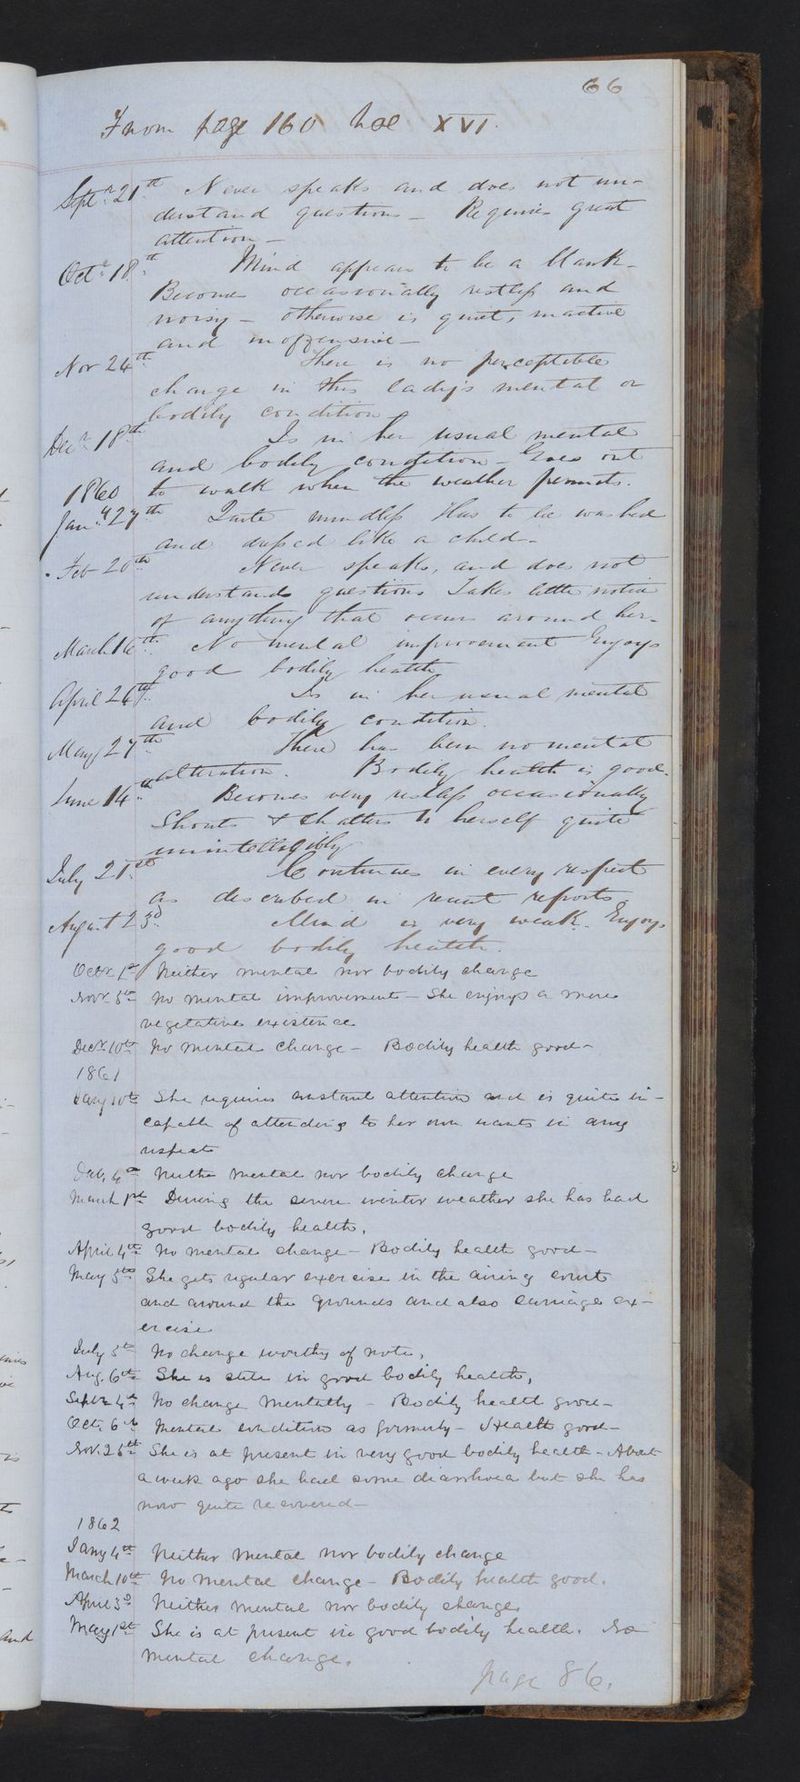 66
From page 160 Vol XVI.
Septr 21st Never speaks and does not un-
derstand questions – Requires great
attention –
Octr 18th Mind appears to be a blank –
Becomes occasionally restless and
noisy – otherwise is quiet, inactive
and inoffensive –
Nov 24th There is no perceptible
change in this lady's mental or
bodily condition –
Decr 18th Is in her usual mental
and bodily condition – Goes out
1860 to walk when the weather permits.
Jany 27th Quite mindless Has to be washed
and dressed like a child –
Feb 20th Never speaks, and does not
understand questions Takes little notice
of anything that occurs around her –
March 16th No mental improvement Enjoys
good bodily health
April 26th Is in her usual mental
and bodily condition.
May 27th There has been no mental
alteration. Bodily health is good.
June 14th Becomes very restless occasionally
Shouts & chatters to herself quite
unintelligibly
July 21st Continues in every respect
as described in recent reports
August 23d Mind is very weak. Enjoys
good bodily health.
Octr 1st Neither mental nor bodily change
Novr 5th No mental improvement – She enjoys a mere
vegetative existence
Decr 10th No mental change – Bodily health good –
1861
Jany 10th She requires constant attention and is quite in-
capable of attending to her own wants in any
respect
Feby 4th Neither mental nor bodily change
March 1st During the severe winter weather she has had
good bodily health.
April 4th No mental change – Bodily health good –
May 5th She gets regular exercise in the airing court
and around the grounds and also carriage ex-
ercise
July 5th No change worthy of note,
Aug. 6th She is still in good bodily health,
Septr 4th No change mentally – Bodily health good –
Octr 6th Mental condition as formerly – Health good –
Nov. 26th She is at present in very good bodily health – About
a week ago she had some diarrhoea but she has
now quite recovered –
1862
Jany 4th Neither mental nor bodily change
March 10th No mental change – Bodily health good.
April 3d Neither mental nor bodily change,
May 1st She is at present in good bodily health. No
mental change.
page 86.